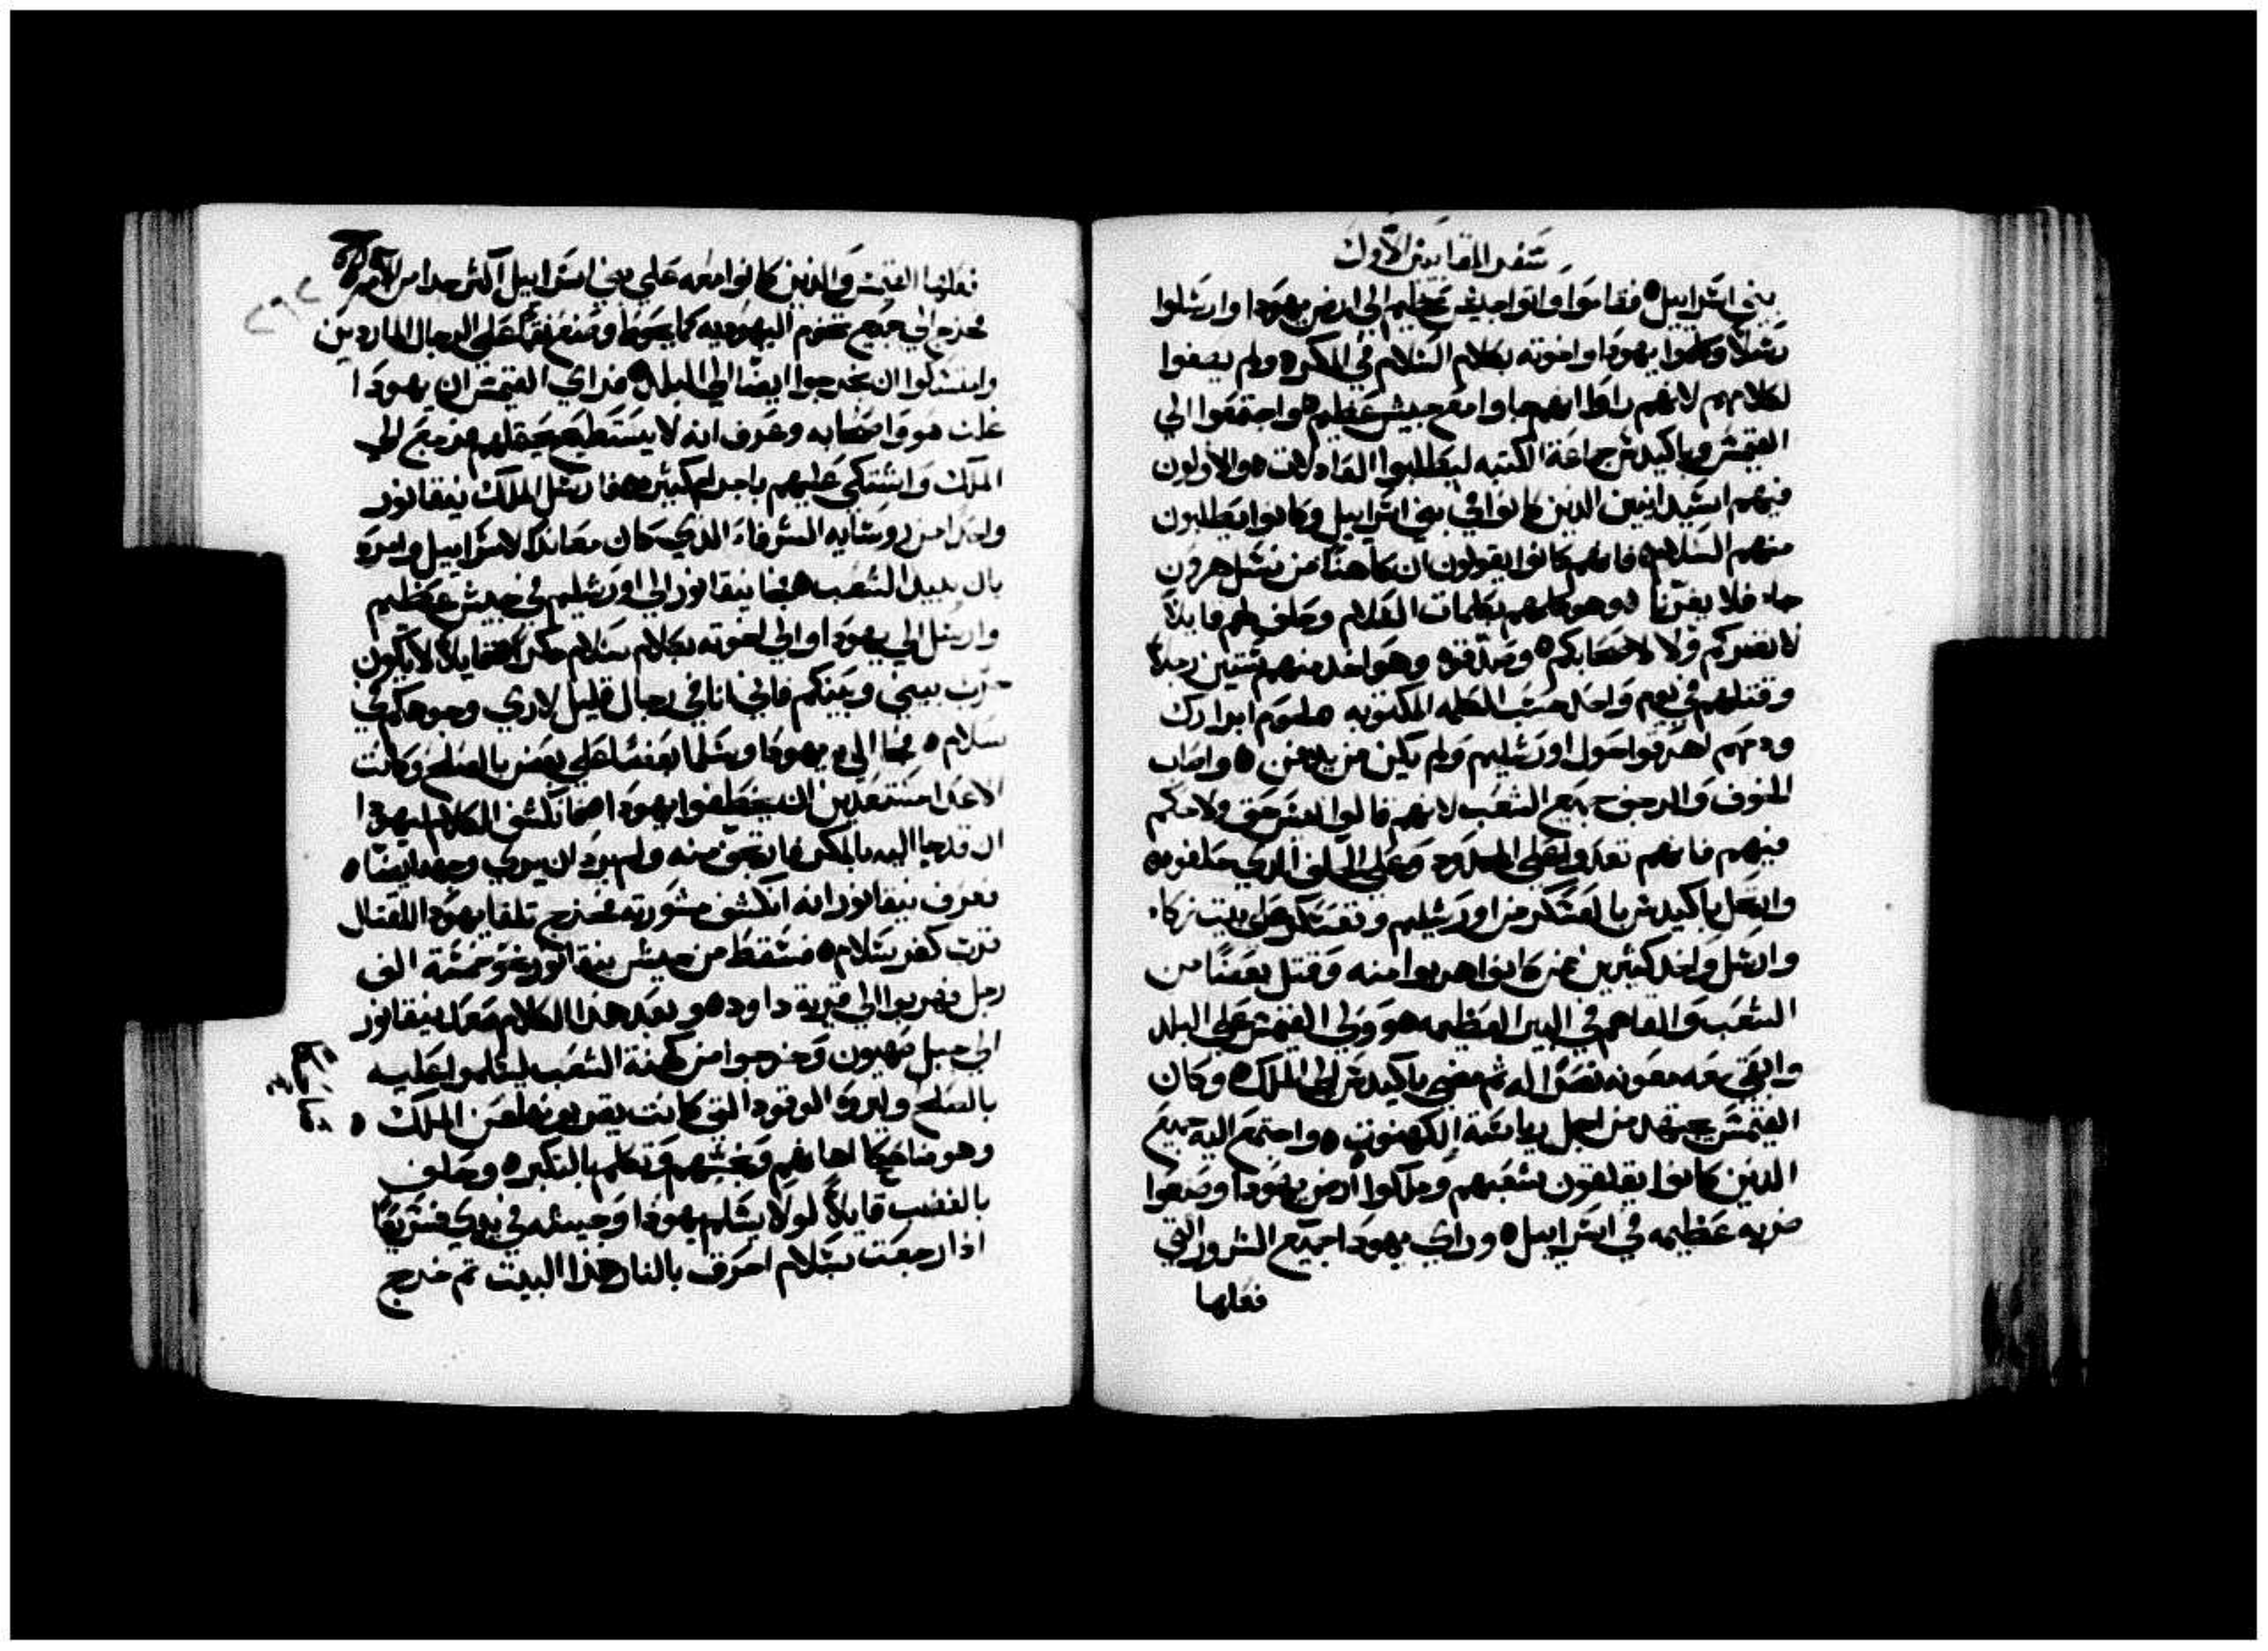 سفر المقابيين الاول
بني اسراييل ه فقاموا واتوا بجيش عظيم الي ارض يهودا وارسلوا
رسلاً وكلموا يهودا واخوته بكلام السلام في المكر ه ولم يصغوا
لكلامهم لانهم راوا انهم جاوا مع جيش عظيم ه واجتمعوا الي
القيمس وباكيدس جماعة الكتبه ليطلبوا العادلات ه والاولون
فيهم اسيدانيين الذين كانوا في بني اسراييل وكانوا يطلبون
منهم السلام ه فانهم كانوا يقولون ان كاهناً من نسل هرون
جاء فلا يغرنا ه وهو كلمهم بكلمات السلام وحلف لهم قايلاً
لا نضركم ولا لاصحابكم ه وصدقوه وهو اخذ منهم ستين رجلاً
وقتلهم في يوم واحد حسب الكلمه المكتوبه لحوم ابرارك
ودمهم اهرقوا حول اورشليم ولم يكن من يدفن ه واصاب
الخوف والرجوج جميع الشعب لانهم قالوا ليس حق ولا حكم
فيهم فانهم تعدوا علي الحدود وعلي الحلف الذي حلفوه ه
وارتحل باكيدس بالعسكر من اورشليم وتعسكر علي بيت زكاء
وارسل واخذ كثيرين ممن كانوا هربوا منه وقتل بعضاً من
الشعب والقاهم في البير العظيمه ه وولي القيمس علي البلد
وابقي معه معونه نصراً له ثم مضي باكيدس الي الملك ه وكان
القيمس يجتهد من اجل رياسة الكهنوت ه واجتمع اليه جميع
الذين كانوا يقلقون شعبهم وملكوا ارض يهودا وصنعوا
ضربه عظيمه في اسراييل ه وراي يهودا جميع الشرور التي
فعلها
فعلها القيمس والذين كانوا معه علي بني اسراييل اكثر جدا من الامم
خرج الي جميع تخوم اليهوديه كما يحوط وصنع نقمة علي الرجال الماردين
وامسكوا ان يخرجوا ايضا الي البلد ه فراي القيمس ان يهودا
غلب هو واصحابه وعرف انه لا يستطيع يحتملهم فرجع الي
الملك واشتكي عليهم باجرام كثيره ه فارسل الملك نيقانور
واحدا من روسايه الشرفاء الذي كان معاندا لاسراييل وامره
بان يبيد الشعب ه فجا نيقانور الي اورشليم في جيش عظيم
وارسل الي يهودا والي اخوته بكلام سلام مكراً قايلاً لا يكون
حرب بيني وبينكم فاني انا في رجال قليل لاري وجوهكم في
سلام ه فجا الي يهودا وسلما بعضها علي بعض بالصلح وكانت
الاعدا مستعدين ان يخطفوا يهودا ه فانكشف الكلام ليهودا
ان قد جا اليه بالمكر فارتجف منه ولم يرد ان يري وجهه ايضا ه
فعرف نيقانور انه انكشف مشورته فخرج تلقا يهودا للقتال
قرب كفر سلام ه فسقط من جيش نيقانور نحو خمسة الف
رجل وهربوا الي قرية داود ه وبعد هذا الكلام صعد نيقانور
الي جبل صهيون وخرجوا من كهنة الشعب ليسلموا عليه
بالصلح وليروه الوقود التي كانت يقربونها عن الملك ه
وهو ضاحكا اهانهم ونجسهم وتكلم بالتكبر ه وحلف
بالغضب قايلاً لولا يسلم يهودا وجيشه في يدي سريعاً
اذا رجعت بسلام احرق بالنار هذا البيت ثم خرج